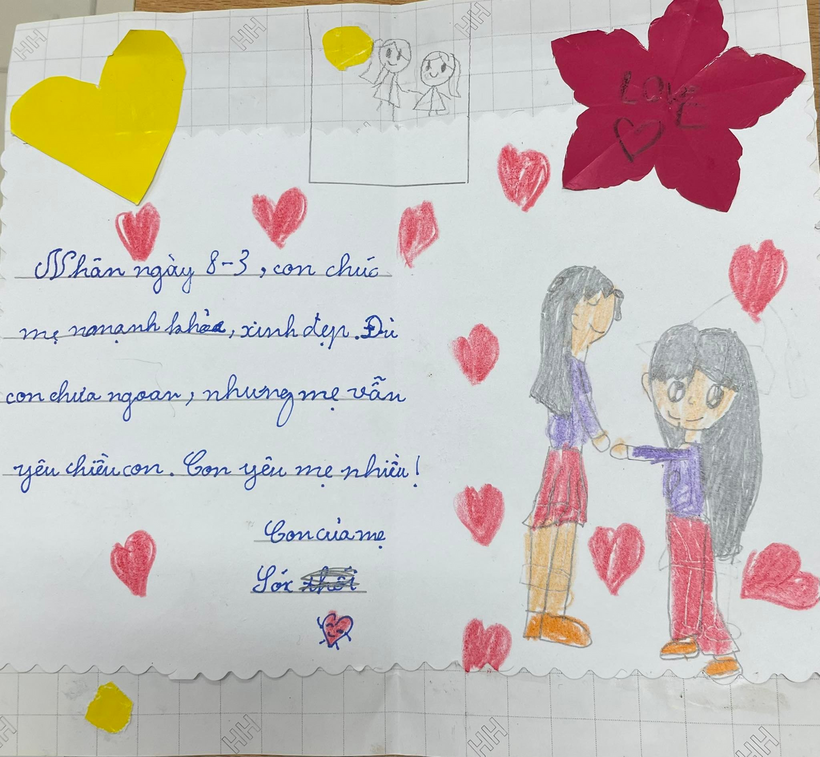 HH
HH
LOVE
Nhân ngày 8-3, con chúc
mẹ mạnh khỏe, xinh đẹp. Dù
con chưa ngoan, nhưng mẹ vẫn
yêu chiều con. Con yêu mẹ nhiều!
Con của mẹ
Sóc
HH
HH
HH
HH